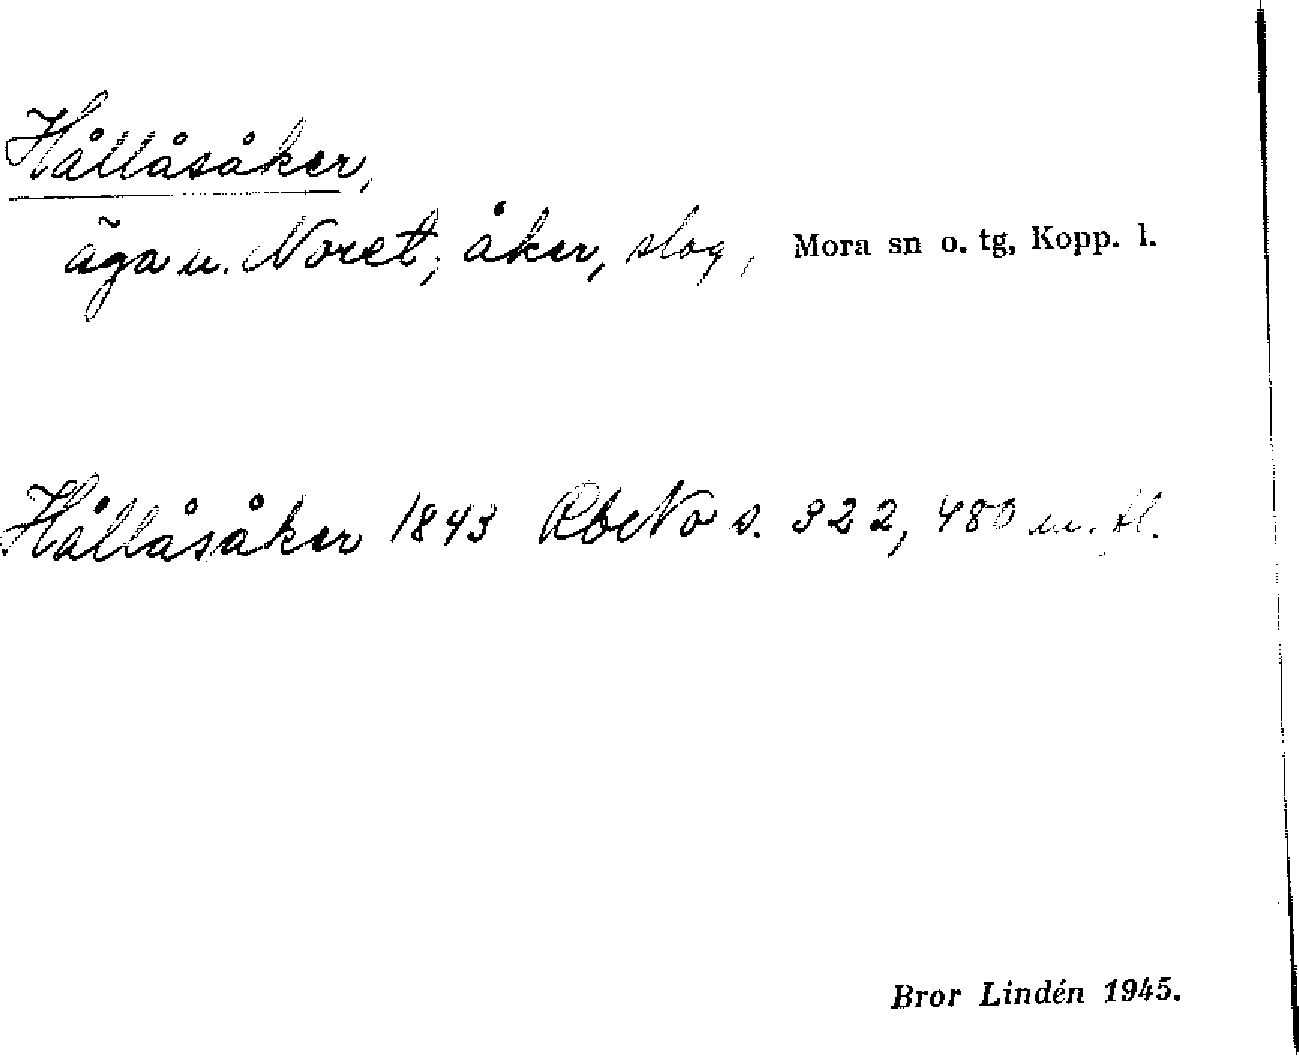 Hållåsåker,
äga u. Noret; åker, slog, Mora sn o. tg, Kopp. l.
Hållåsåker 1843 RbNo s. 322, 480 m. fl.
Bror Lindén 1945.